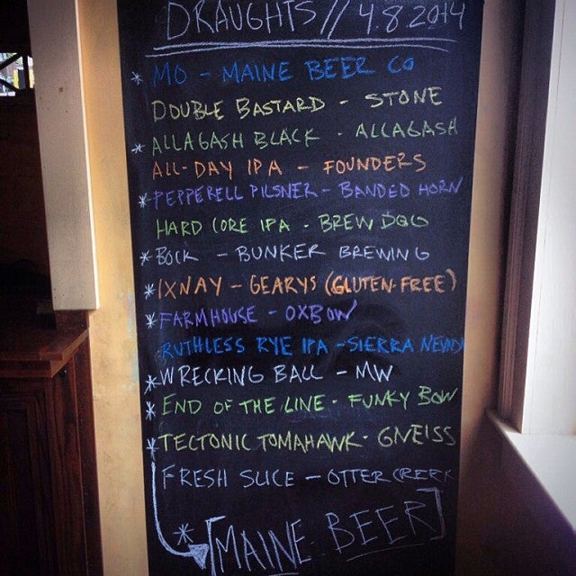 DRAUGHTS // 4.8.2014
* MO - MAINE BEER CO
DOUBLE BASTARD - STONE
* ALLAGASH BLACK - ALLAGASH
ALL-DAY IPA - FOUNDERS
* PEPPERELL PILSNER - BANDED HORN
HARD CORE IPA - BREW DOG
* BOCK - BUNKER BREWING
* IXNAY - GEARYS (GLUTEN-FREE)
* FARMHOUSE - OXBOW
RUTHLESS RYE IPA - SIERRA NEVADA
* WRECKING BALL - MW
* END OF THE LINE - FUNKY BOW
* TECTONIC TOMAHAWK - GNEISS
FRESH SLICE - OTTER CREEK
* [MAINE BEER]